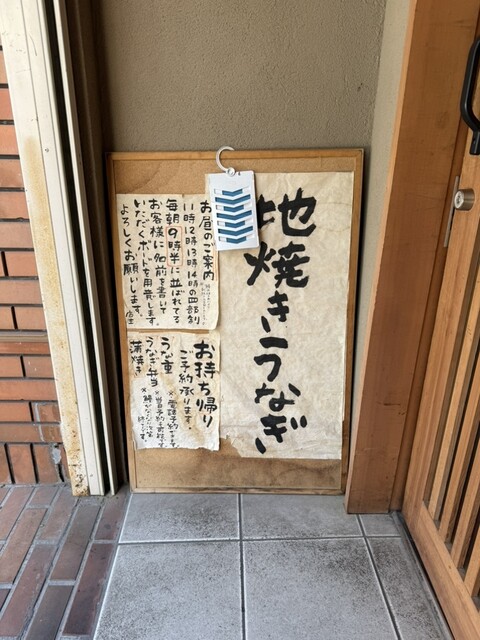 地焼きうなぎ
お昼のご案内
11時12時13時14時の四部制
毎朝9時半に並ばれてる
お客様に名前を書いて
いただくボードを用意します。
よろしくお願いします。
店主
お持ち帰り
ご予約承ります。
うな重
うなぎ弁当
蒲焼き